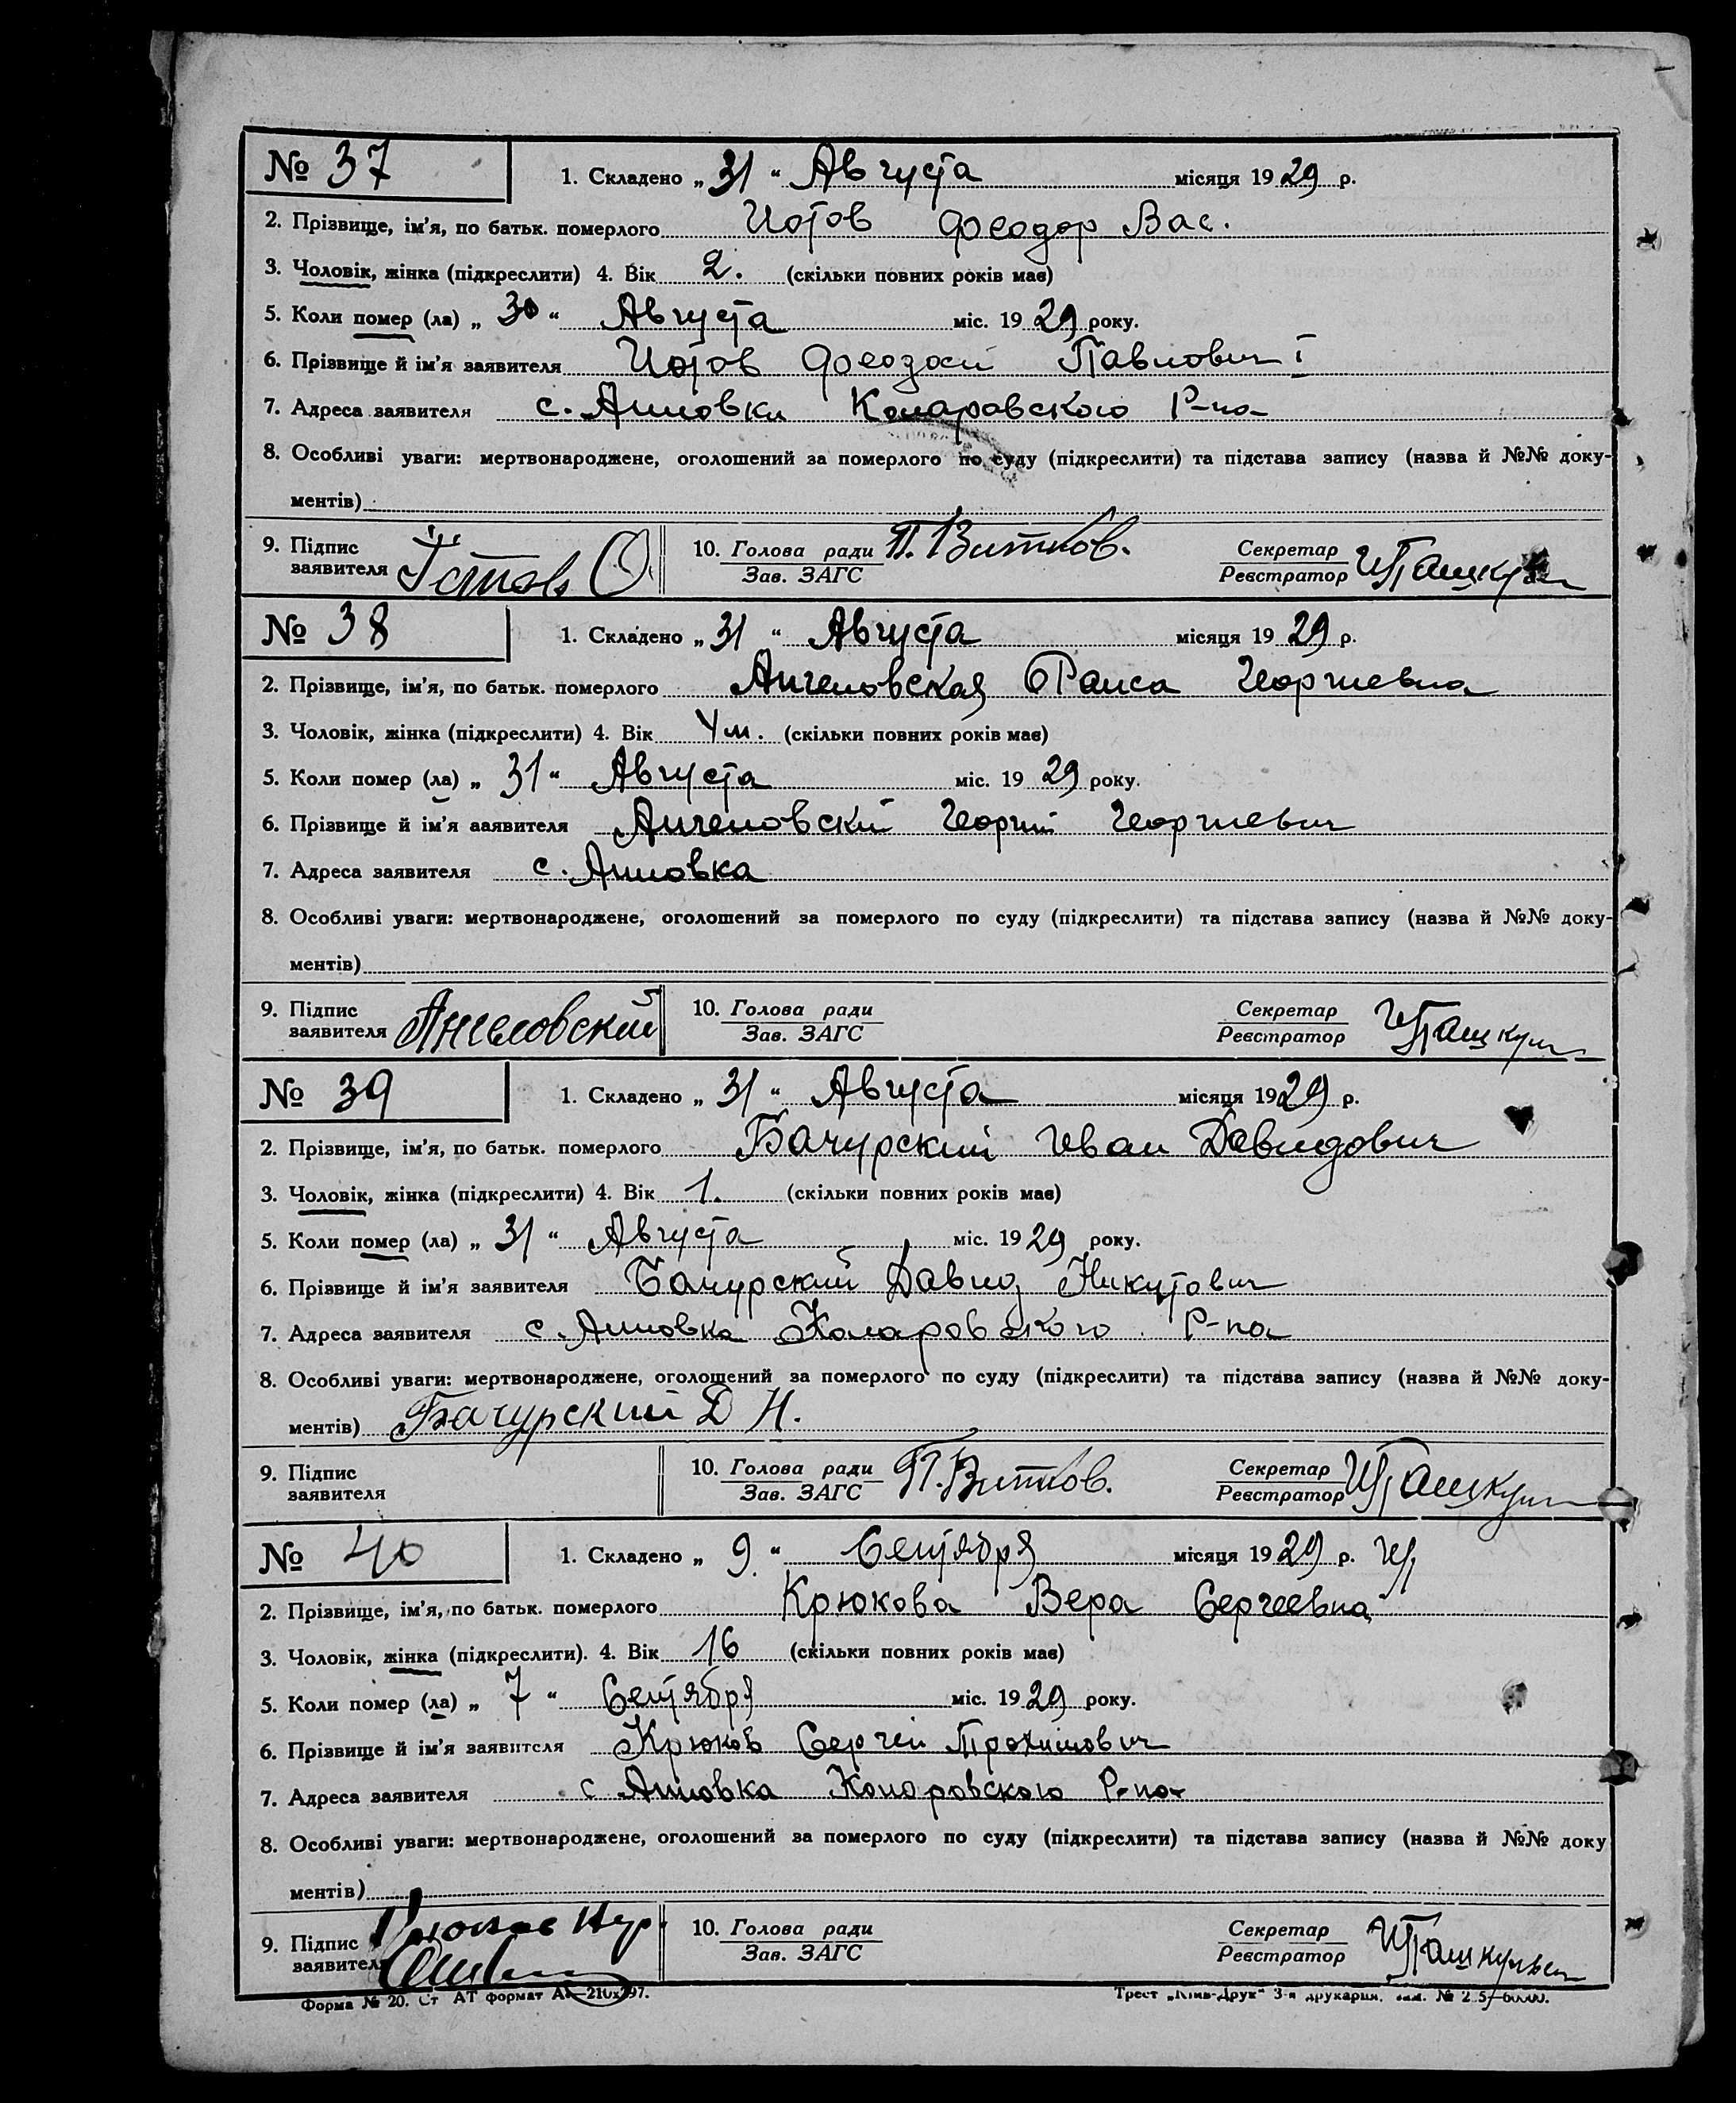 № 37
1. Складено „31“ Августа місяця 1929 р.
2. Прізвище, ім'я, по батьк. померлого Иотов Феодор Вас.
3. Чоловік, жінка (підкреслити) 4. Вік 2. (скільки повних років має)
5. Коли помер (ла) „30“ Августа міс. 1929 року.
6. Прізвище й ім'я заявителя Иотов Феодосий Павлович I
7. Адреса заявителя с. Анновки Коларовского Р-на
8. Особливі уваги: мертвонароджене, оголошений за померлого по суду (підкреслити) та підстава запису (назва й №№ доку-
ментів)
9. Підпис заявителя Іотов Ѳ. 10. Голова ради Зав. ЗАГС П. Витков. Секретар Реєстратор
№ 38
1. Складено „31“ Августа місяця 1929 р.
2. Прізвище, ім'я, по батьк. померлого Ангеловская Раиса Георгиевна
3. Чоловік, жінка (підкреслити) 4. Вік 4 м. (скільки повних років має)
5. Коли помер (ла) „31“ Августа міс. 1929 року.
6. Прізвище й ім'я заявителя Ангеловский Георгий Георгиевич
7. Адреса заявителя с. Анновка
8. Особливі уваги: мертвонароджене, оголошений за померлого по суду (підкреслити) та підстава запису (назва й №№ доку-
ментів)
9. Підпис заявителя Ангеловский 10. Голова ради Зав. ЗАГС Секретар Реєстратор
№ 39
1. Складено „31“ Августа місяця 1929 р.
2. Прізвище, ім'я, по батьк. померлого Бачурский Иван Давидович
3. Чоловік, жінка (підкреслити) 4. Вік 1. (скільки повних років має)
5. Коли помер (ла) „31“ Августа міс. 1929 року.
6. Прізвище й ім'я заявителя Бачурский Давид Никитович
7. Адреса заявителя с. Анновка Коларовского Р-на
8. Особливі уваги: мертвонароджене, оголошений за померлого по суду (підкреслити) та підстава запису (назва й №№ доку-
ментів) Бачурский Д Н.
9. Підпис заявителя 10. Голова ради Зав. ЗАГС П. Витков. Секретар Реєстратор
№ 40
1. Складено „9.“ Сентября місяця 1929 р.
2. Прізвище, ім'я, по батьк. померлого Крюкова Вера Сергеевна
3. Чоловік, жінка (підкреслити). 4. Вік 16 (скільки повних років має)
5. Коли помер (ла) „7“ Сентября міс. 1929 року.
6. Прізвище й ім'я заявителя Крюков Сергей Трохимович
7. Адреса заявителя с Анновка Коларовского Р-на
8. Особливі уваги: мертвонароджене, оголошений за померлого по суду (підкреслити) та підстава запису (назва й №№ доку
ментів)
9. Підпис заявителя Крюков 10. Голова ради Зав. ЗАГС Секретар Реєстратор
Форма № 20. Ст АТ формат А4—210х297. Трест „Київ-Друк“ 3-я друкарня.